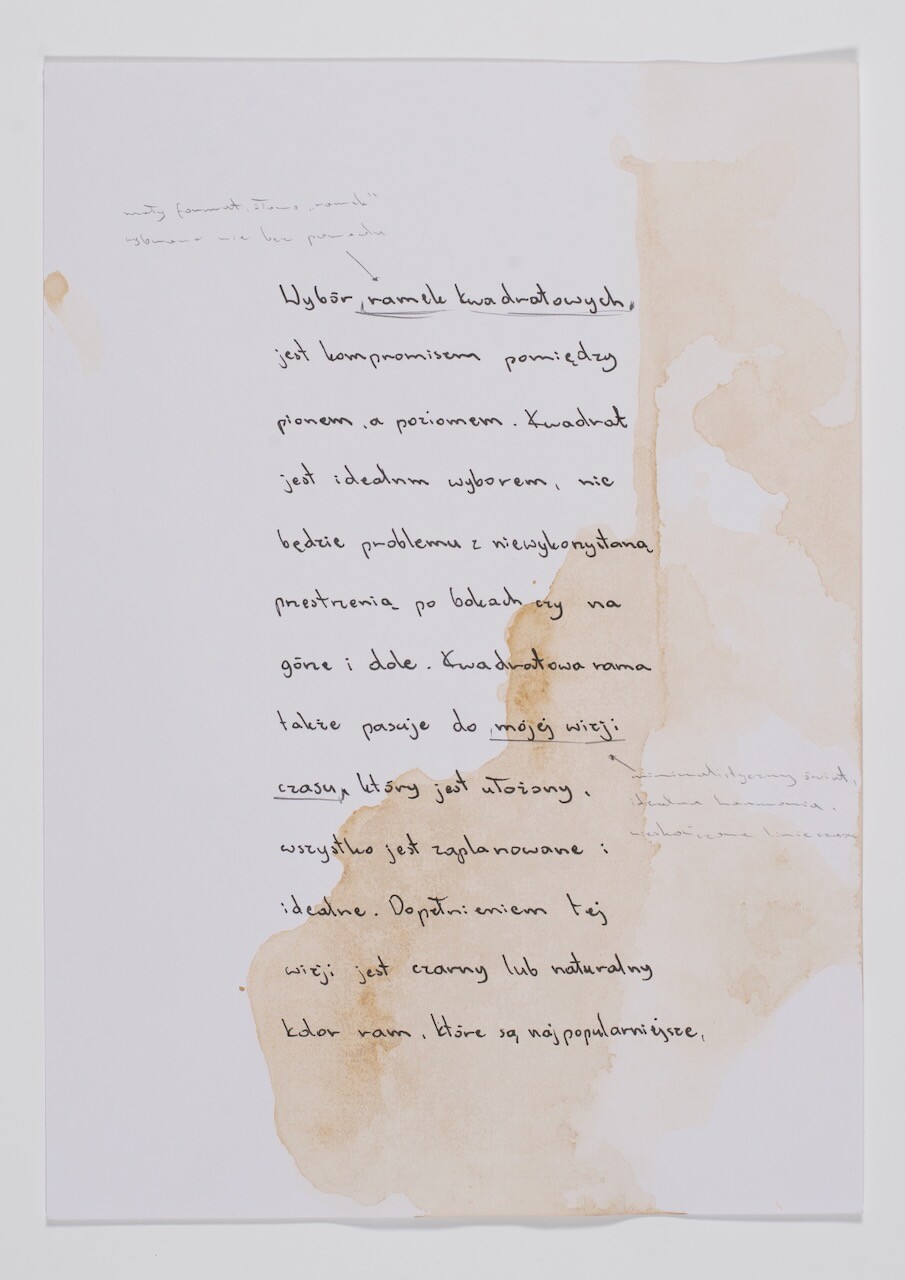 mały format, słowo „ramek"
wybrano nie bez powodu
Wybór „ramek kwadratowych"
jest kompromisem pomiędzy
pionem, a poziomem. Kwadrat
jest idealnm wyborem, nie
będzie problemu z niewykorzystaną
przestrzenią po bokach czy na
górze i dole. Kwadratowa rama
także pasuje do „mójej wizji
czasu", który jest ułożony,
wszystko jest zaplanowane i
idealne. Dopełnieniem tej
wizji jest czarny lub naturalny
kolor ram, które są najpopularniejsze,
minimalistyczny świat,
idealna harmonia,
nieskończone linie czasu